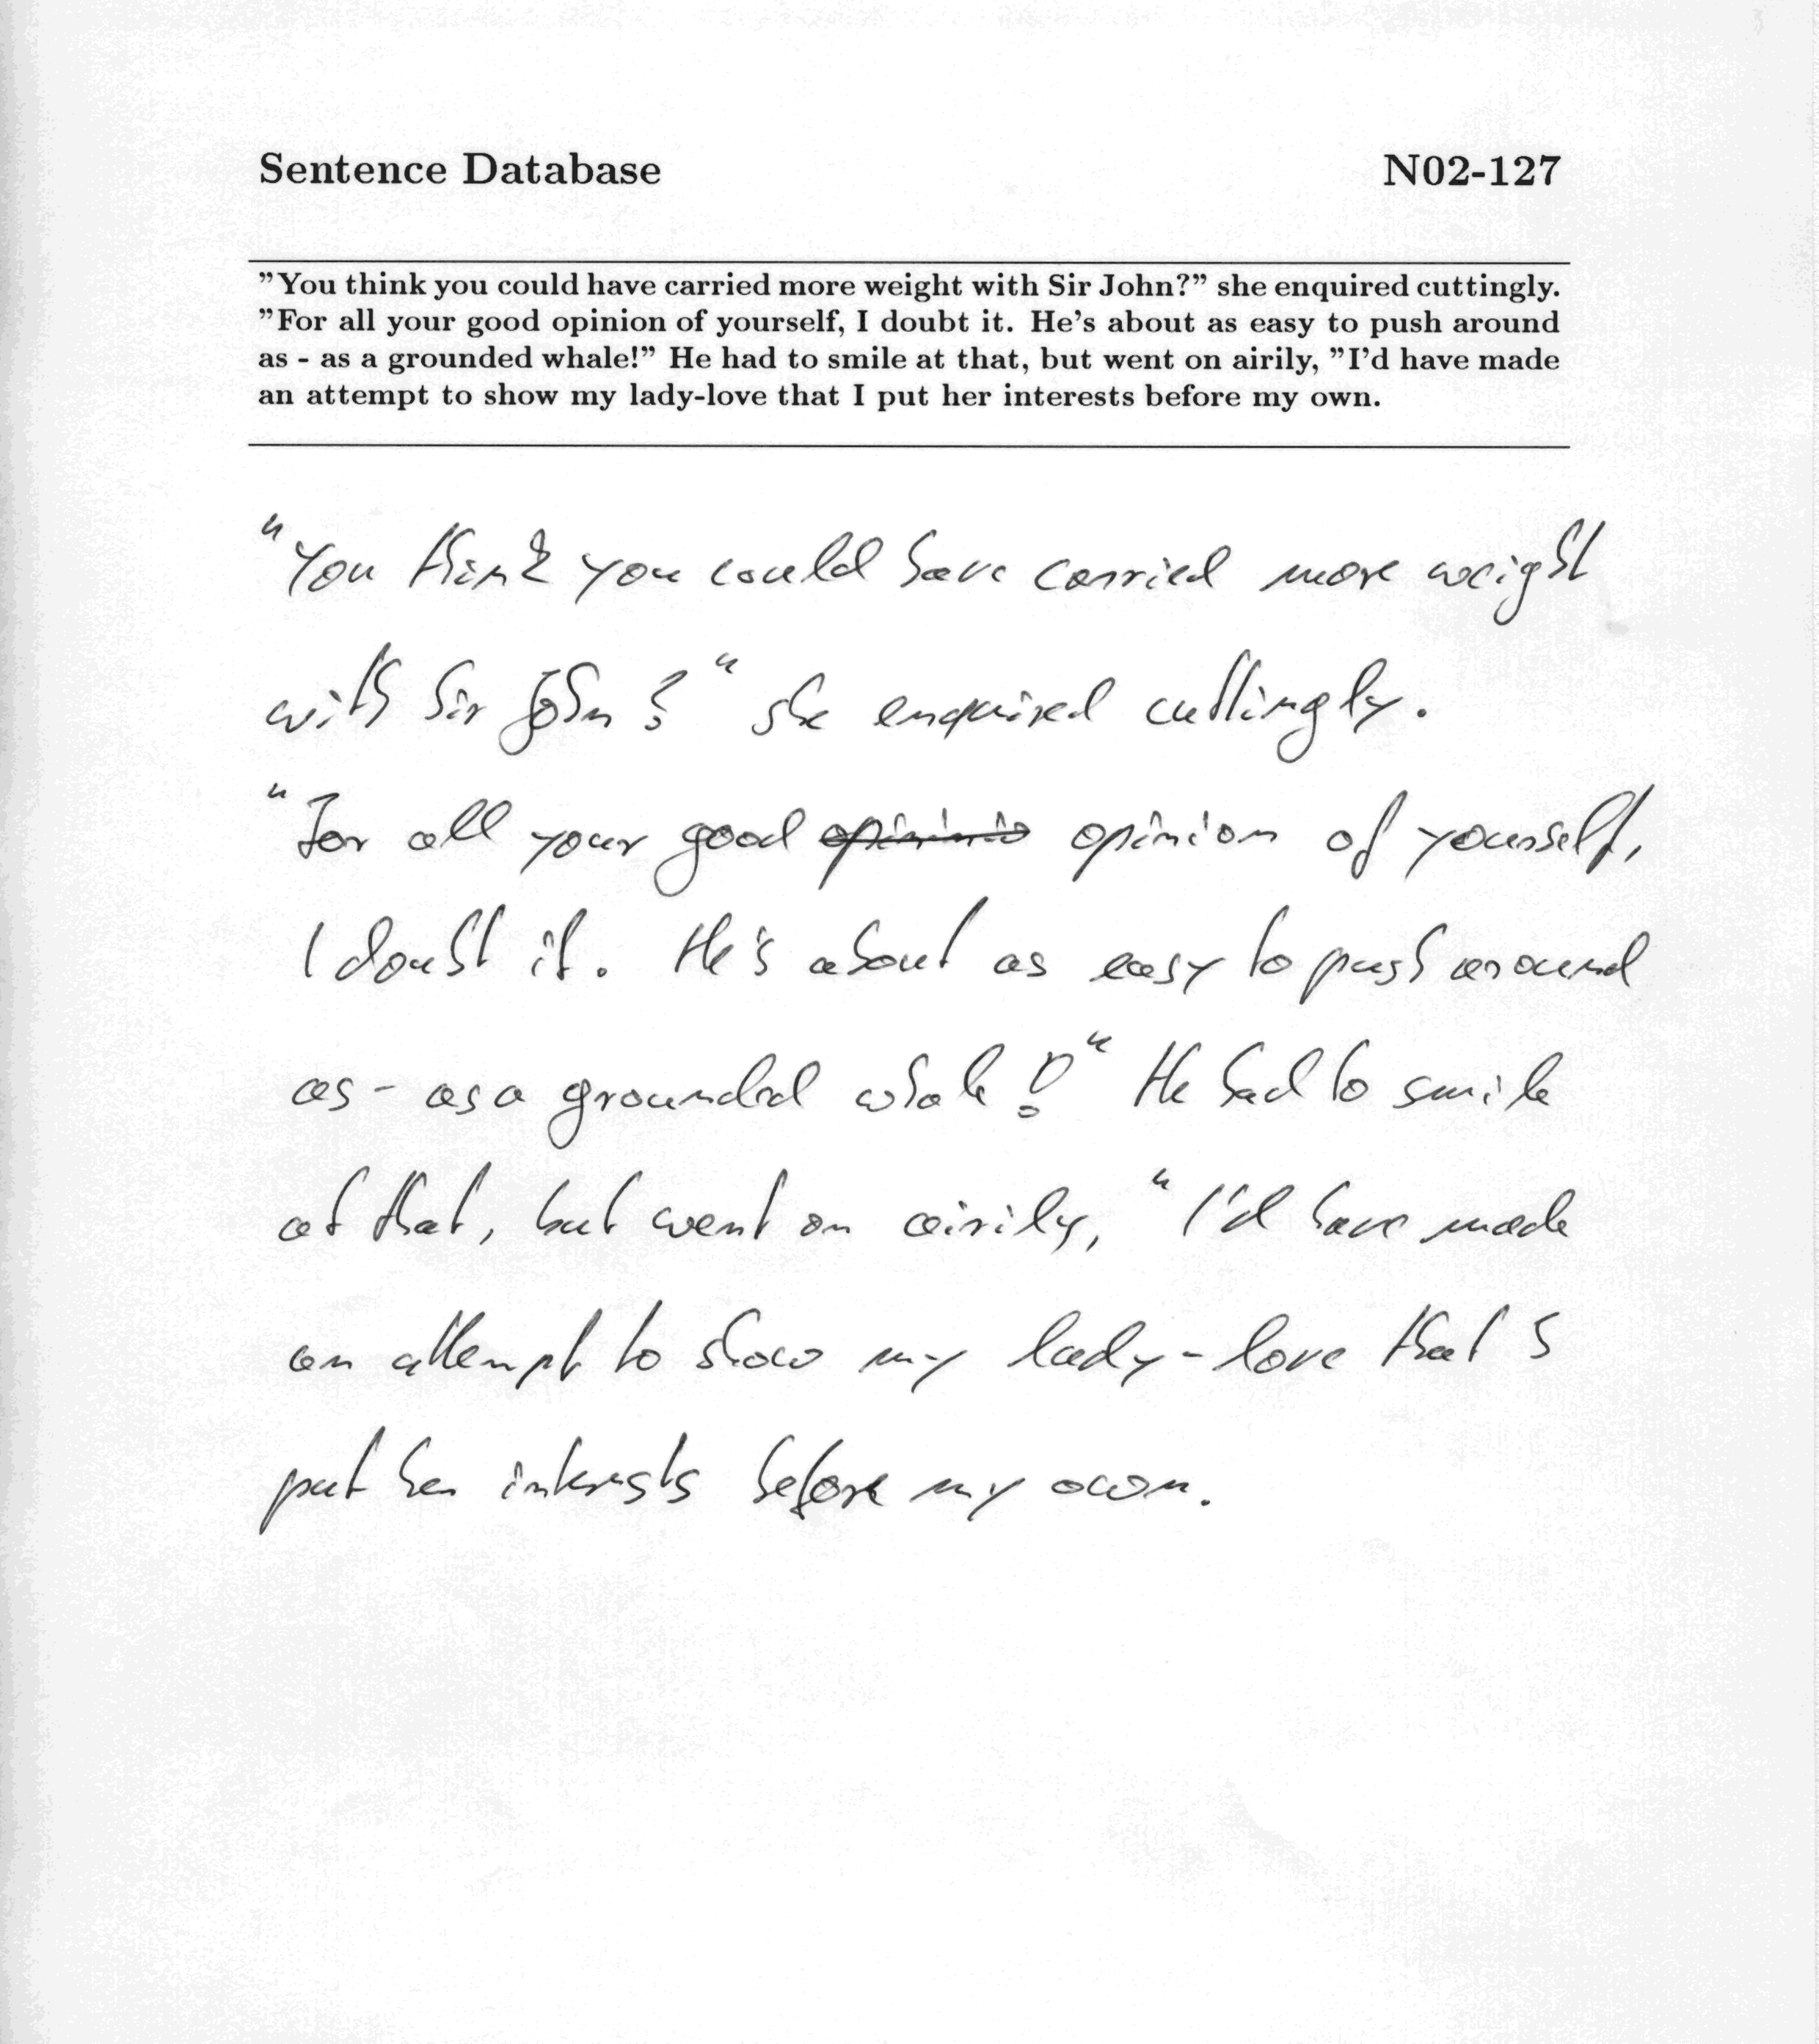 Sentence Database N02-127
"You think you could have carried more weight with Sir John?" she enquired cuttingly.
"For all your good opinion of yourself, I doubt it. He's about as easy to push around
as - as a grounded whale!" He had to smile at that, but went on airily, "I'd have made
an attempt to show my lady-love that I put her interests before my own.
"You think you could have carried more weight
with Sir John?" she enquired cuttingly.
"For all your good opininio opinion of yourself,
I doubt it. He's about as easy to push around
as - as a grounded whale!" He had to smile
at that, but went on airily, "I'd have made
an attempt to show my lady-love that I
put her interests before my own.